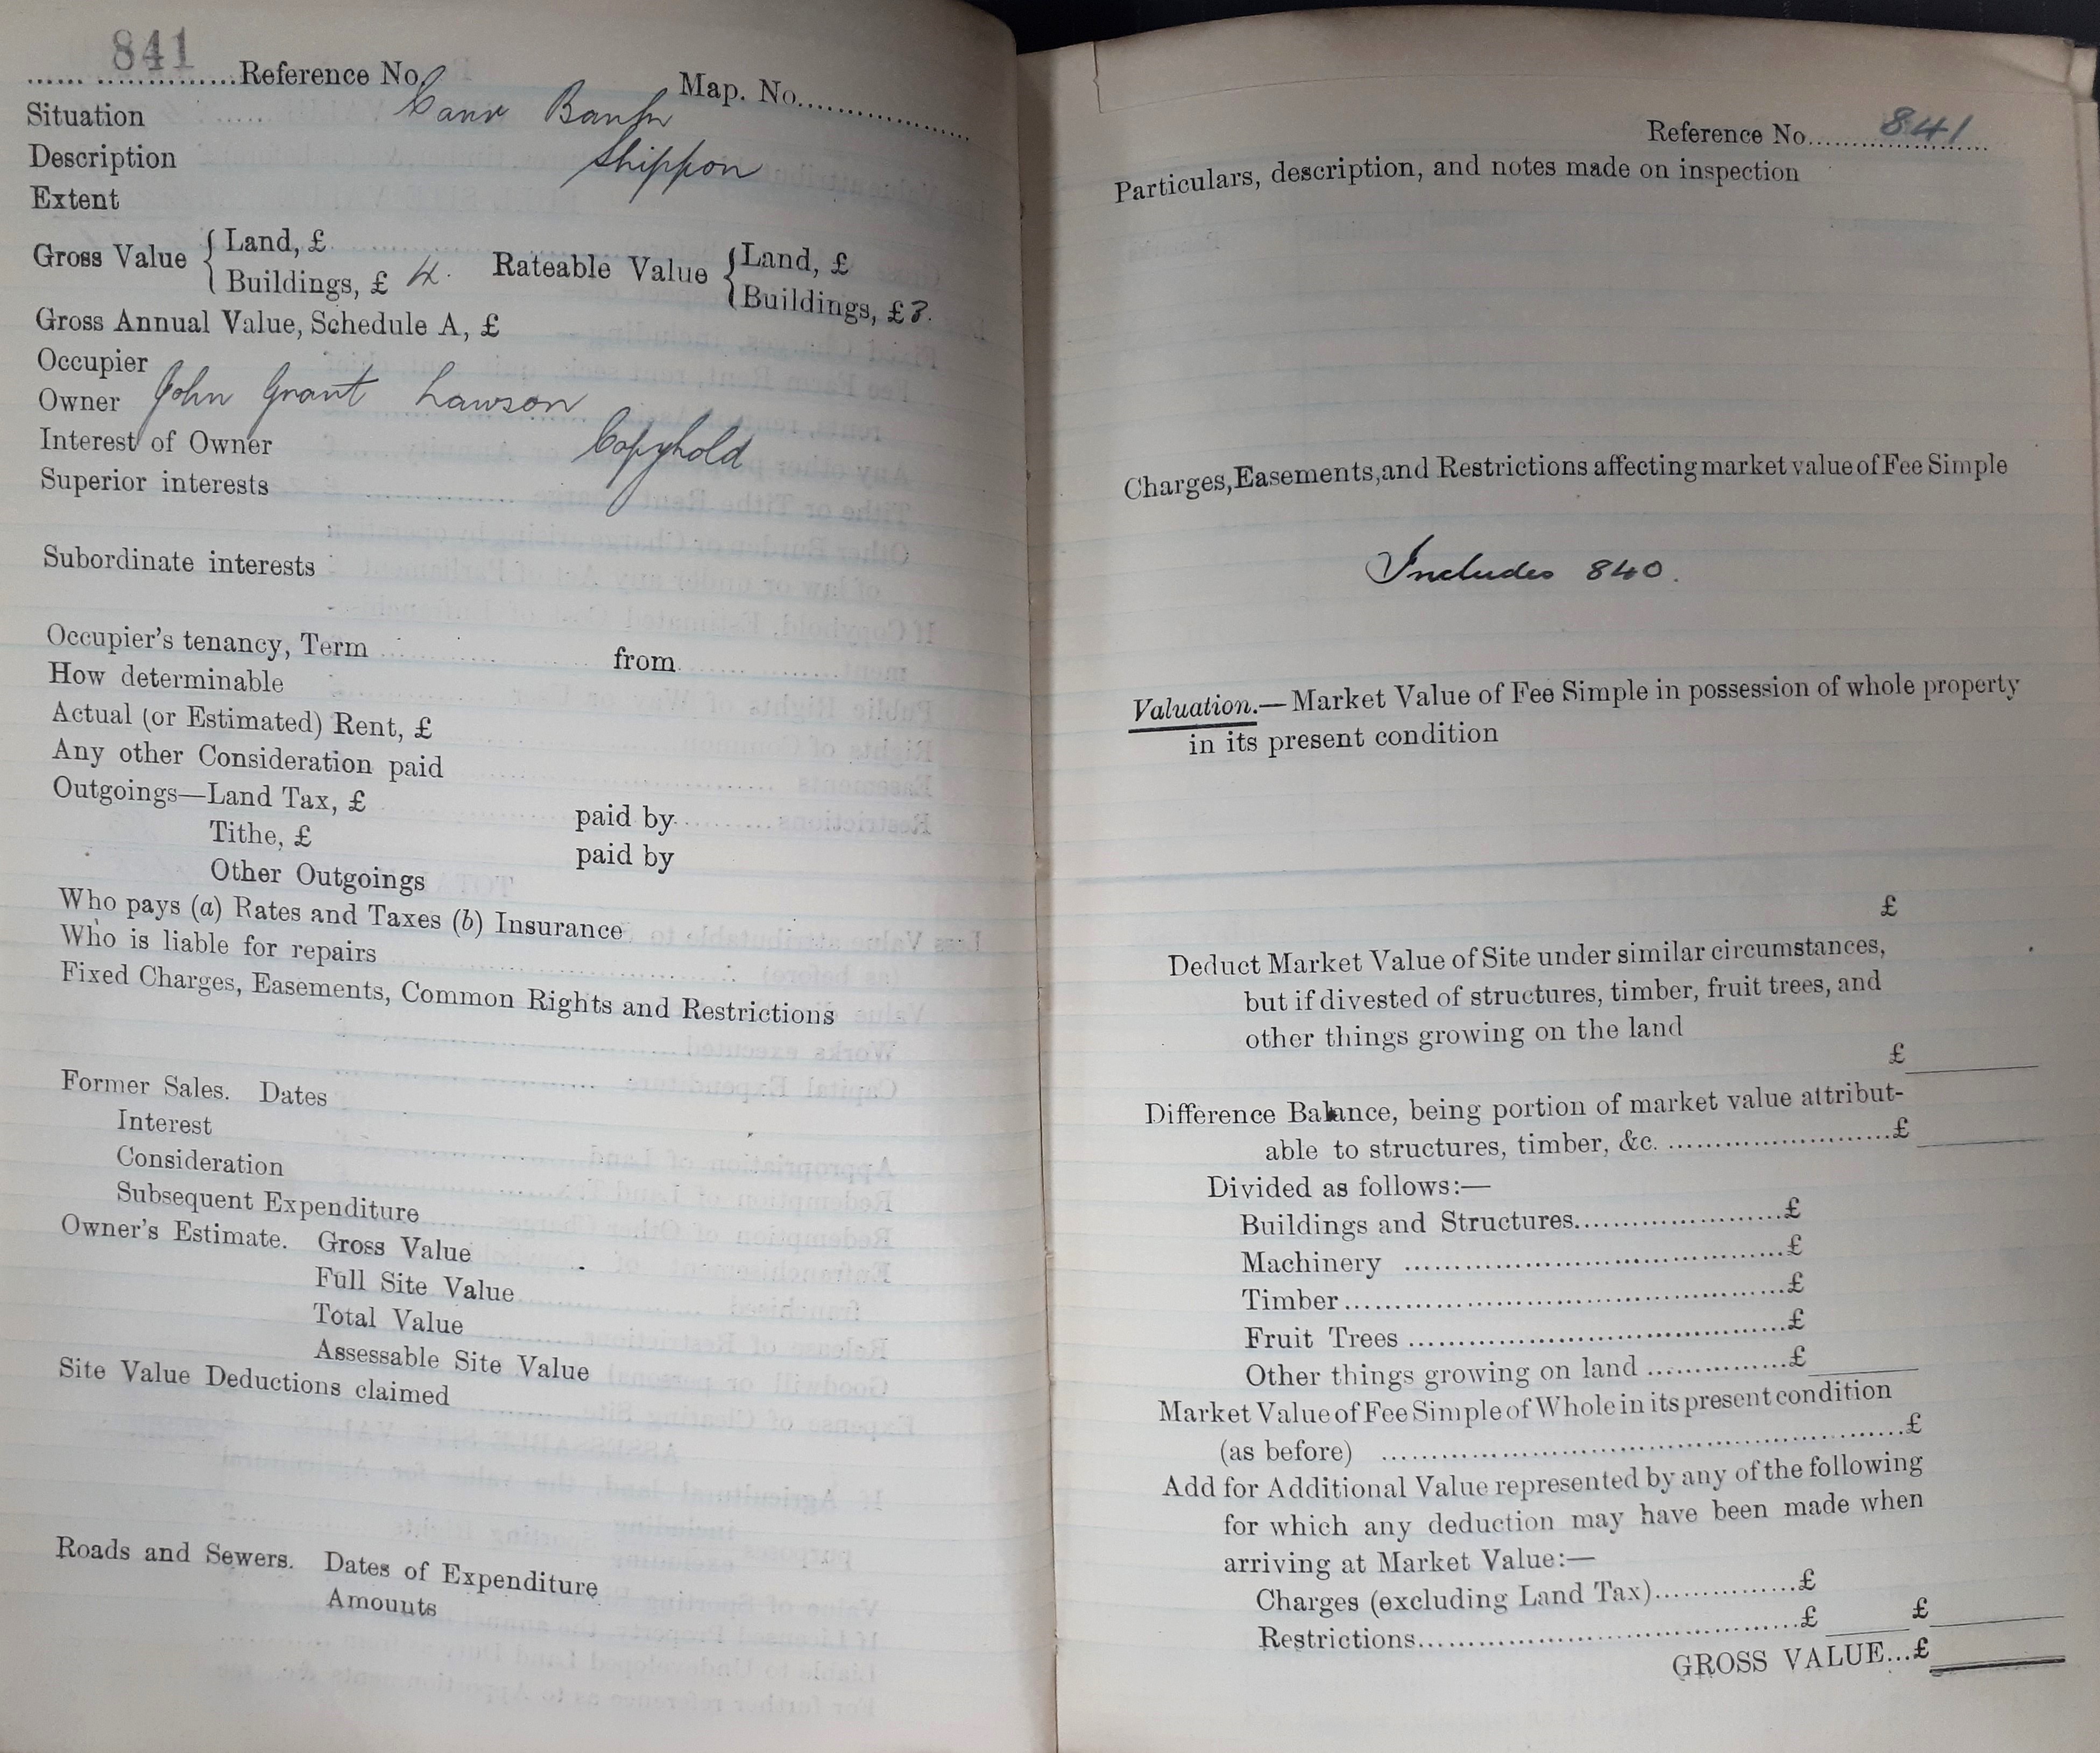 841
Reference No. Map. No.
Situation Carr Bank
Description Shippon
Extent
Gross Value { Land, £ Rateable Value { Land, £
Buildings, £ 4. Buildings, £ 3.
Gross Annual Value, Schedule A, £
Occupier
Owner John Grant Lawson
Interest of Owner Copyhold
Superior interests
Subordinate interests
Occupier's tenancy, Term from
How determinable
Actual (or Estimated) Rent, £
Any other Consideration paid
Outgoings—Land Tax, £ paid by
Tithe, £ paid by
Other Outgoings
Who pays (a) Rates and Taxes (b) Insurance
Who is liable for repairs
Fixed Charges, Easements, Common Rights and Restrictions
Former Sales. Dates
Interest
Consideration
Subsequent Expenditure
Owner's Estimate. Gross Value
Full Site Value
Total Value
Assessable Site Value
Site Value Deductions claimed
Roads and Sewers. Dates of Expenditure
Amounts
Reference No. 841
Particulars, description, and notes made on inspection
Charges, Easements, and Restrictions affecting market value of Fee Simple
Includes 840.
Valuation.—Market Value of Fee Simple in possession of whole property
in its present condition
£
Deduct Market Value of Site under similar circumstances,
but if divested of structures, timber, fruit trees, and
other things growing on the land
£
Difference Balance, being portion of market value attribut-
able to structures, timber, &c. £
Divided as follows:—
Buildings and Structures £
Machinery £
Timber £
Fruit Trees £
Other things growing on land £
Market Value of Fee Simple of Whole in its present condition
(as before) £
Add for Additional Value represented by any of the following
for which any deduction may have been made when
arriving at Market Value:—
Charges (excluding Land Tax) £
Restrictions £ £
GROSS VALUE...£